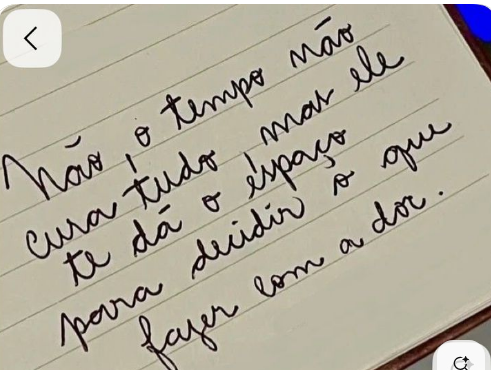 Não, o tempo não
cura tudo, mas ele
te dá o espaço
para decidir o que
fazer com a dor.